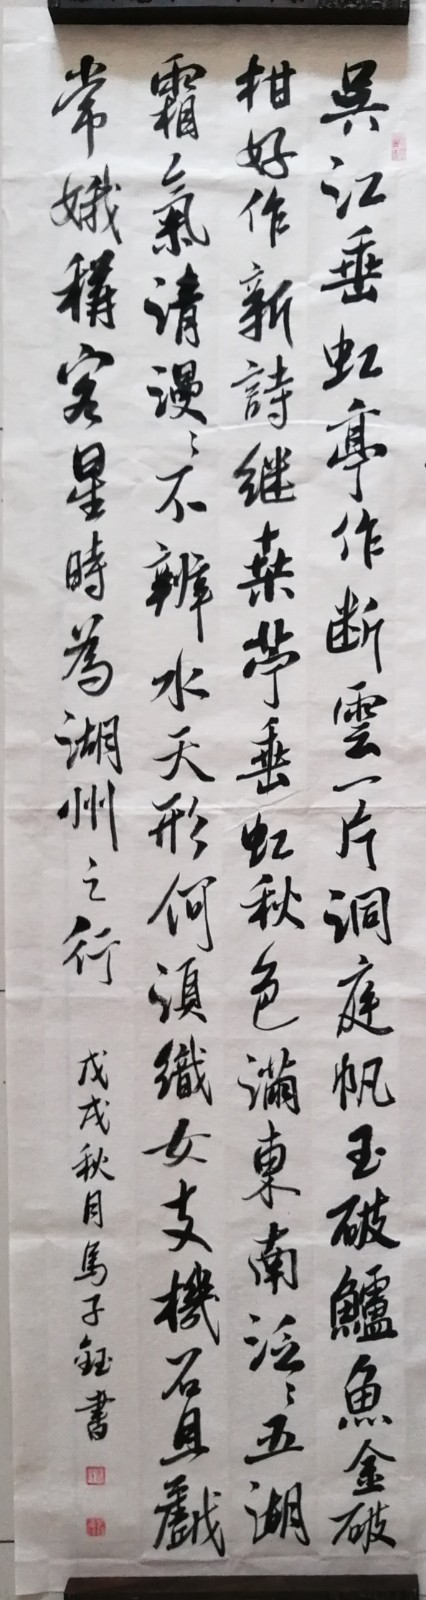 吳江垂虹亭作断雲一片洞庭帆玉破鱸魚金破
柑好作新詩继桑苧垂虹秋色滿東南泛〻五湖
霜氣清漫〻不辨水天形何須織女支機石且戲
常娥稱客星時為湖州之行
戊戌秋月馬子鈺書